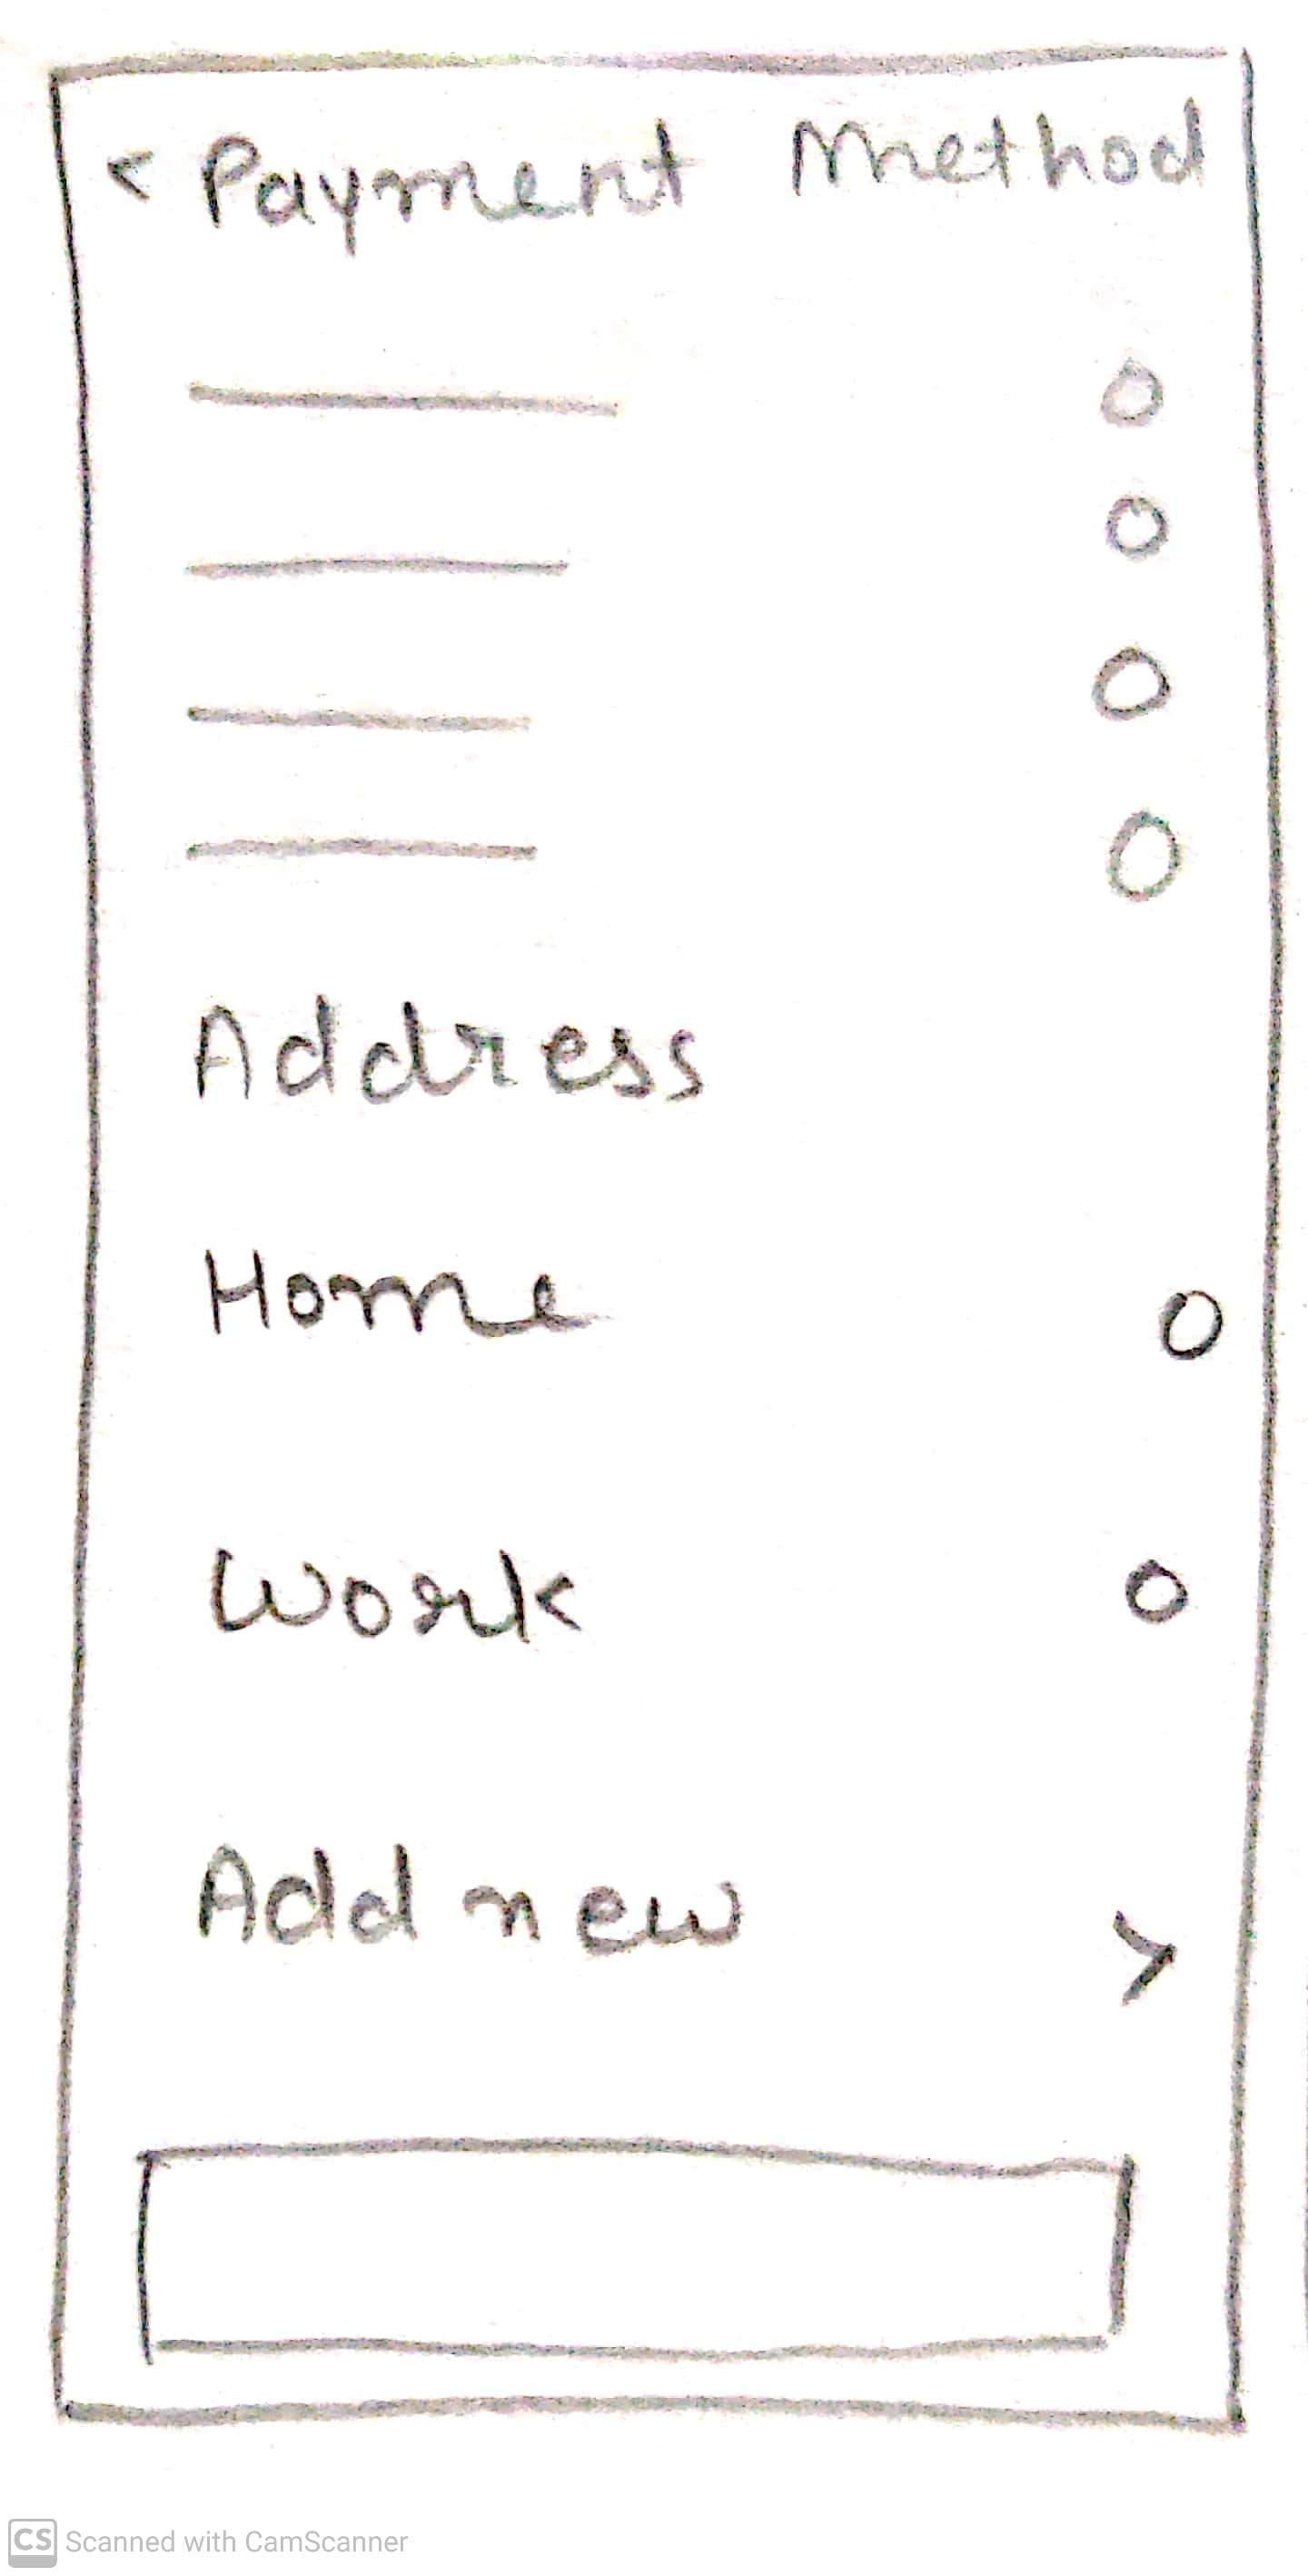 < Payment Method
Address
Home
Work
Add new >
CS Scanned with CamScanner